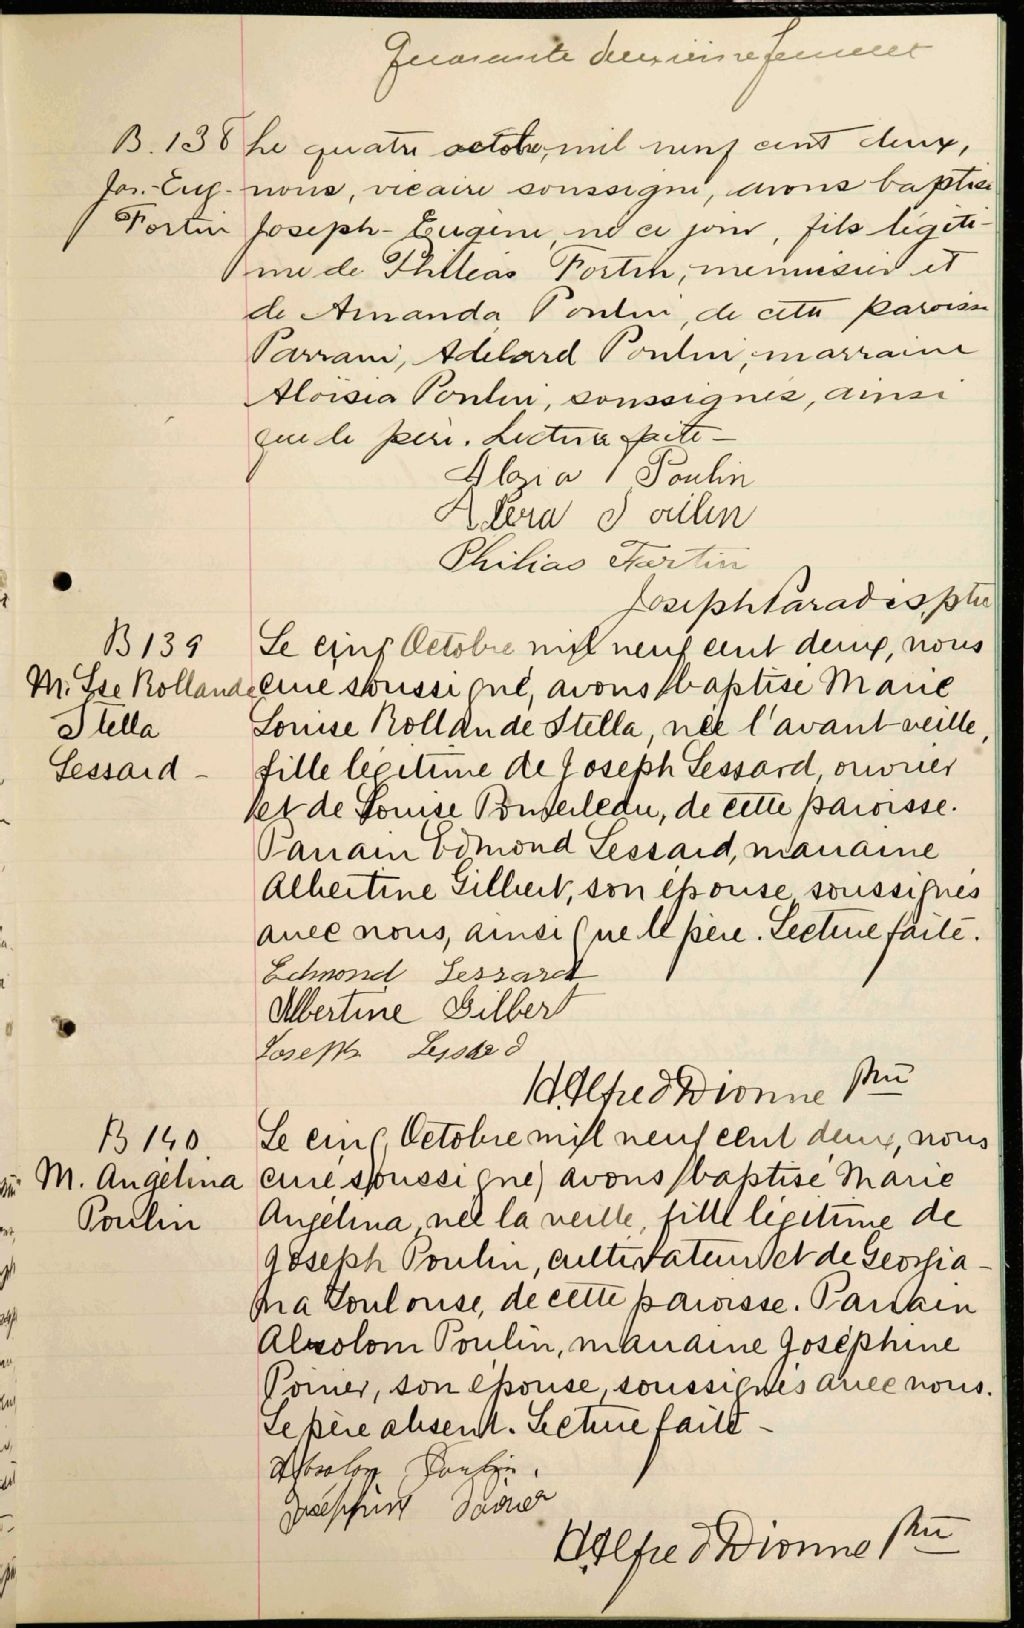 Quarante deuxième feuillet
B. 138
Jos.-Eug-
Fortin
Le quatre octobre, mil neuf cent deux,
nous, vicaire soussigné, avons baptisé
Joseph-Eugène, né ce jour, fils légiti-
me de Philéas Fortin, menuisier et
de Amanda Poulin, de cette paroisse
Parrain, Adélard Poulin, marraine
Aloïsia Poulin, soussignés, ainsi
que le père. Lecture faite –
Poulin
Philias Fortin
Joseph Paradis, ptre
B 139
M. Lse Rollande
Stella
Lessard –
Le cinq Octobre mil neuf cent deux, nous
curé soussigné, avons baptisé Marie
Louise Rollande Stella, née l'avant-veille,
fille légitime de Joseph Lessard, ouvrier
et de Louise Pomerleau, de cette paroisse.
Parrain Edmond Lessard, marraine
Albertine Gilbert, son épouse, soussignés
avec nous, ainsi que le père. Lecture faite.
Edmond Lessard
Albertine Gilbert
Joseph Lessard
H. Alfred Dionne Ptre
B 140
M. Angélina
Poulin
Le cinq Octobre mil neuf cent deux, nous
curé soussigné, avons baptisé Marie
Angélina, née la veille, fille légitime de
Joseph Poulin, cultivateur et de Georgia-
na Toulouse, de cette paroisse. Parrain
Absolom Poulin, marraine Joséphine
Poirier, son épouse, soussignés avec nous.
Le père absent. Lecture faite –
Absolon Poulin.
Joséphine Poirier
H. Alfred Dionne Ptre